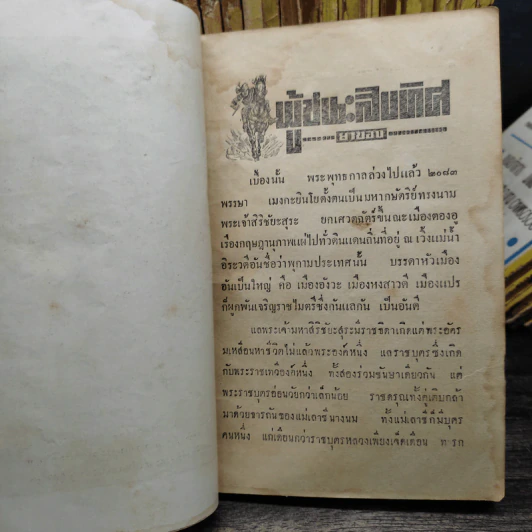 ผู้ชนะสิบทิศ
ยาขอบ
เบื้องนั้น พระพุทธกาลล่วงไปแล้ว ๒๐๘๓
พรรษา เมงกะยินโยตั้งตนเป็นมหากษัตริย์ทรงนาม
พระเจ้าสิริชัยะสุระ ยกเศวตฉัตร์ขึ้นณะเมืองตองอู
เรืองกฤษฎานุภาพแผ่ไปทั่วดินแดนถิ่นที่อยู่ ณ เวิ้งแม่น้ำ
อิระวดีอันชื่อว่าพุกามประเทศนั้น บรรดาหัวเมือง
อันเป็นใหญ่ คือ เมืองอังวะ เมืองหงสาวดี เมืองแปร
ก็ผูกพันเจริญราชไมตรีซึ่งกันแลกัน เป็นอันดี
แลพระเจ้ามหาสิริชัยะสุระมีราชธิดาเกิดแต่พระอัคร
มเหสีอนหาชีวิตไม่แล้วพระองค์หนึ่ง แลราชบุตรซึ่งเกิด
กับพระราชเทวีองค์หนึ่ง ทั้งสองร่วมชันษาเดียวกัน แต่
พระราชบุตรอ่อนวัยกว่าเล็กน้อย ราชดรุณทั้งคู่เติบกล้า
มาด้วยธารถันของแม่เลาชีนางนม ทั้งแม่เลาชีก็มีบุตร
คนหนึ่ง แก่เดือนกว่าราชบุตรหลวงเพียงเจ็ดเดือน ทารก